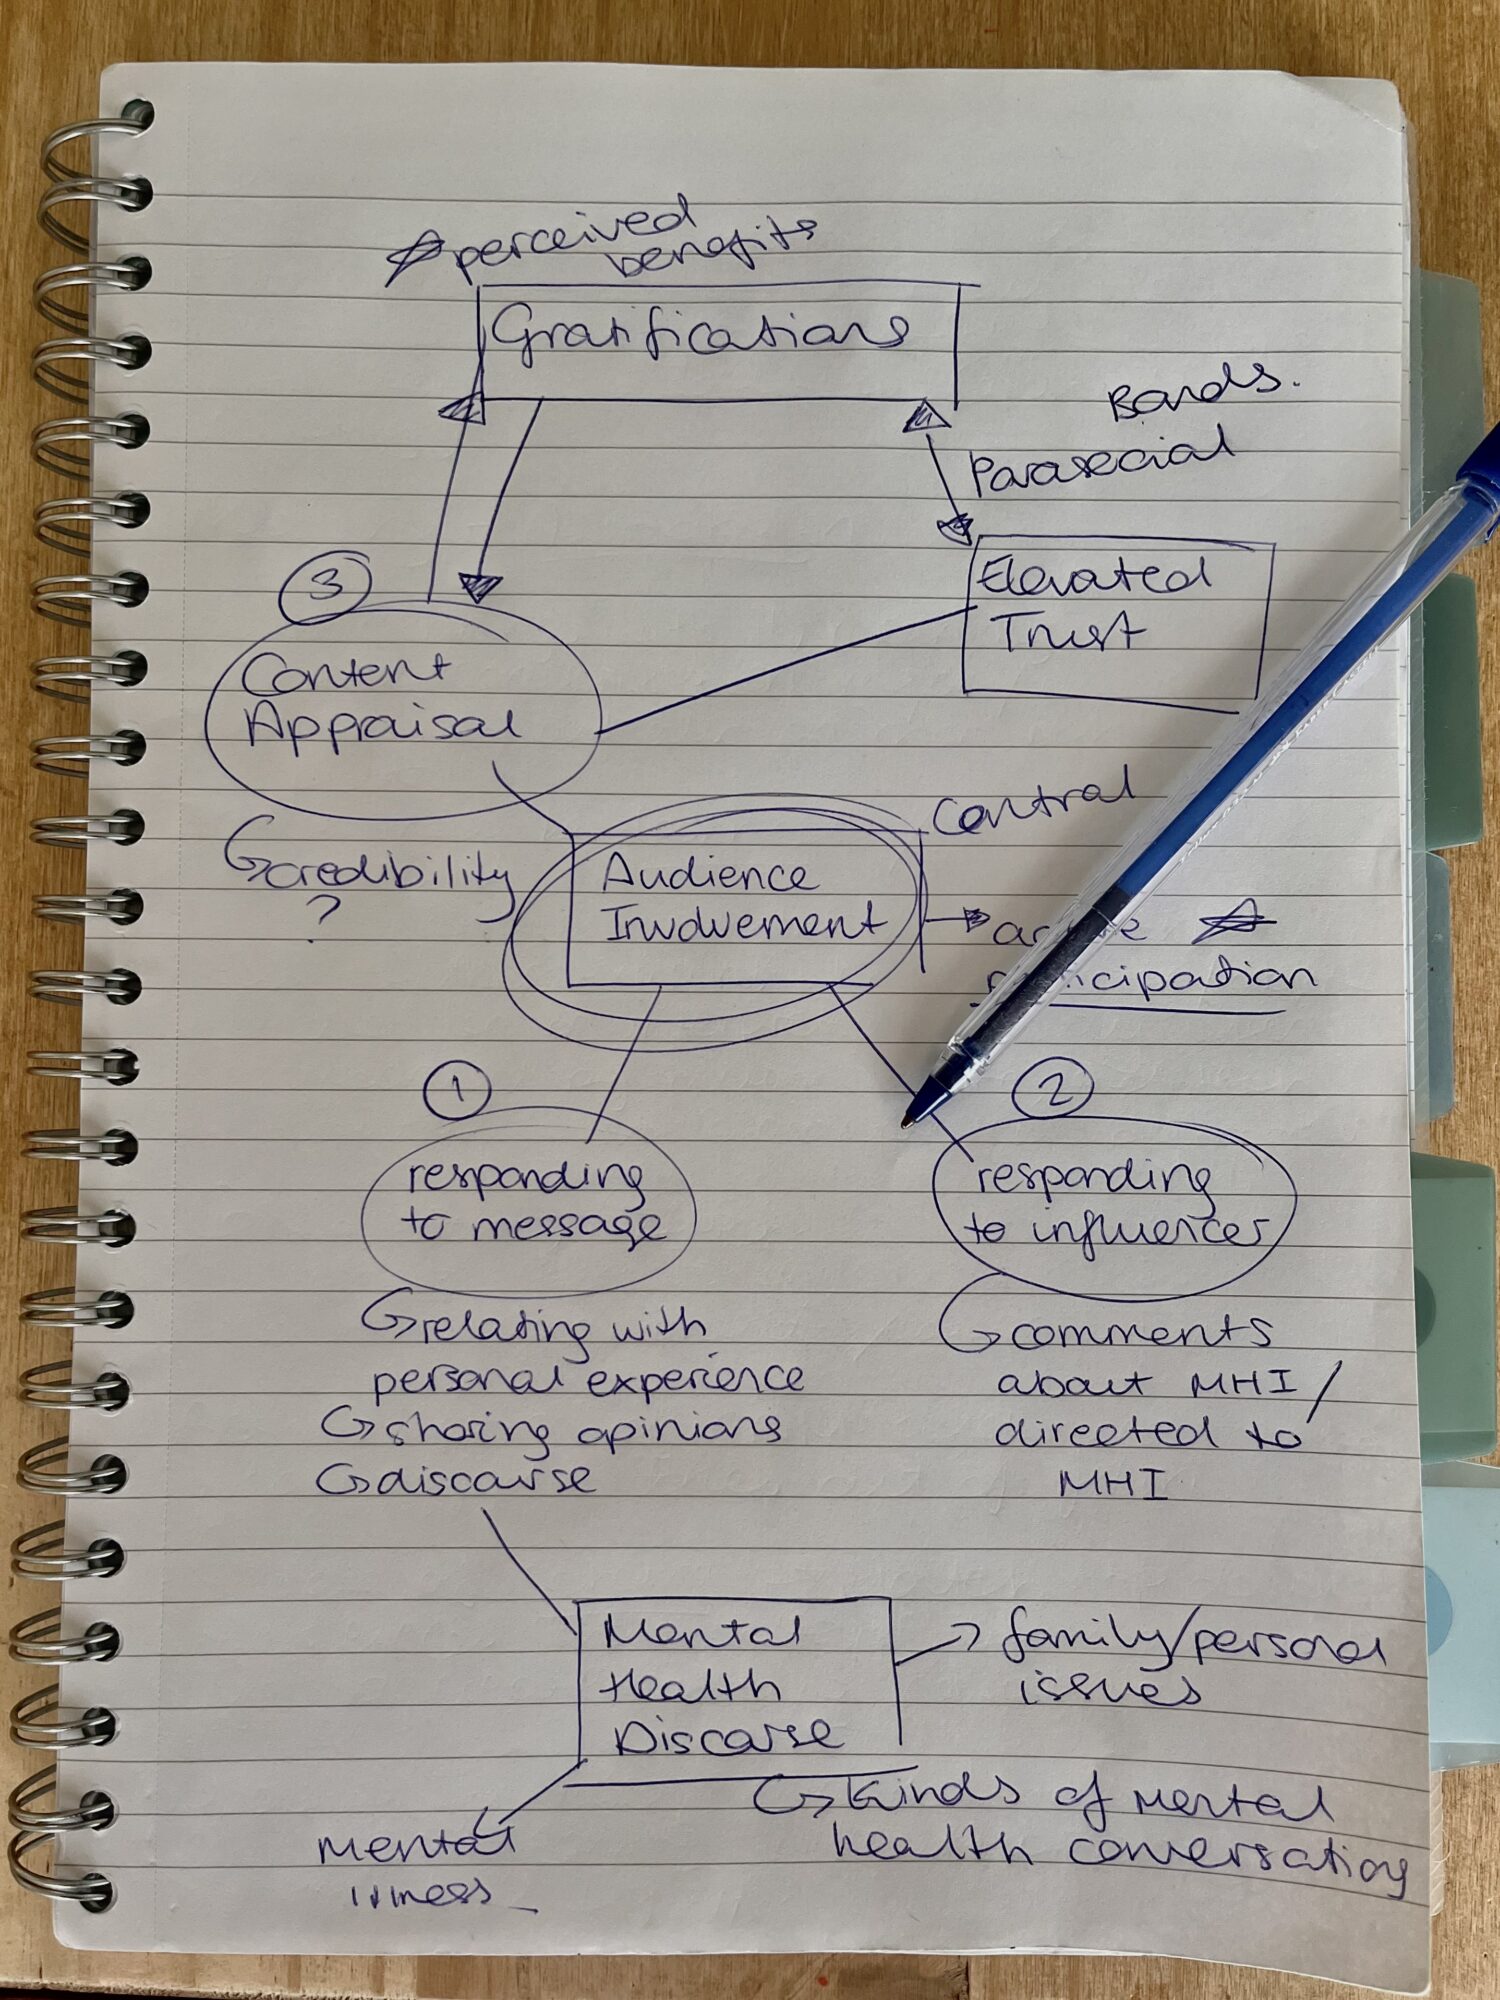 perceived
benefits
Gratifications
Bonds.
Parasocial
3
Elevated
Trust
Content
Appraisal
Central
credibility
?
Audience
Involvement
participation
1
2
responding
to message
responding
to influencer
relating with
personal experience
sharing opinions
discourse
comments
about MHI/
directed to
MHI
Mental
Health
Discourse
family/personal
issues
kinds of mental
health conversations
mental
illness